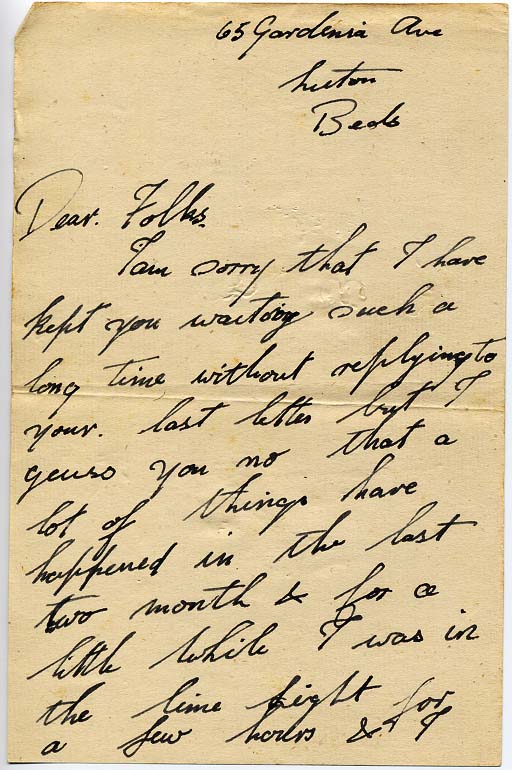 65 Gardenia Ave
Luton
Beds
Dear. Folks.
I am sorry that I have
kept you waiting such a
long time without replying to
your. last letter but I
geuss you no that a
lot of things have
happened in the last
two month & for a
little while I was in
the lime light for
a few hours & I